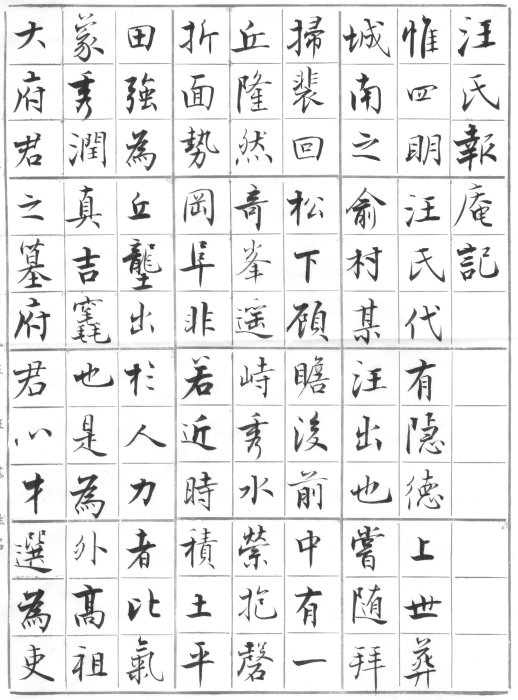 汪氏報庵記
惟四明汪氏代有隠徳上世葬
城南之俞村某汪出也嘗随拜
掃裴回松下顧瞻後前中有一
丘隆然竒峯遥峙秀水縈抱磬
折面勢岡阜非若近時積土平
田強為丘壟出扵人力者比氣
象秀潤真吉竁也是為外高祖
大府君之墓府君以才選為吏